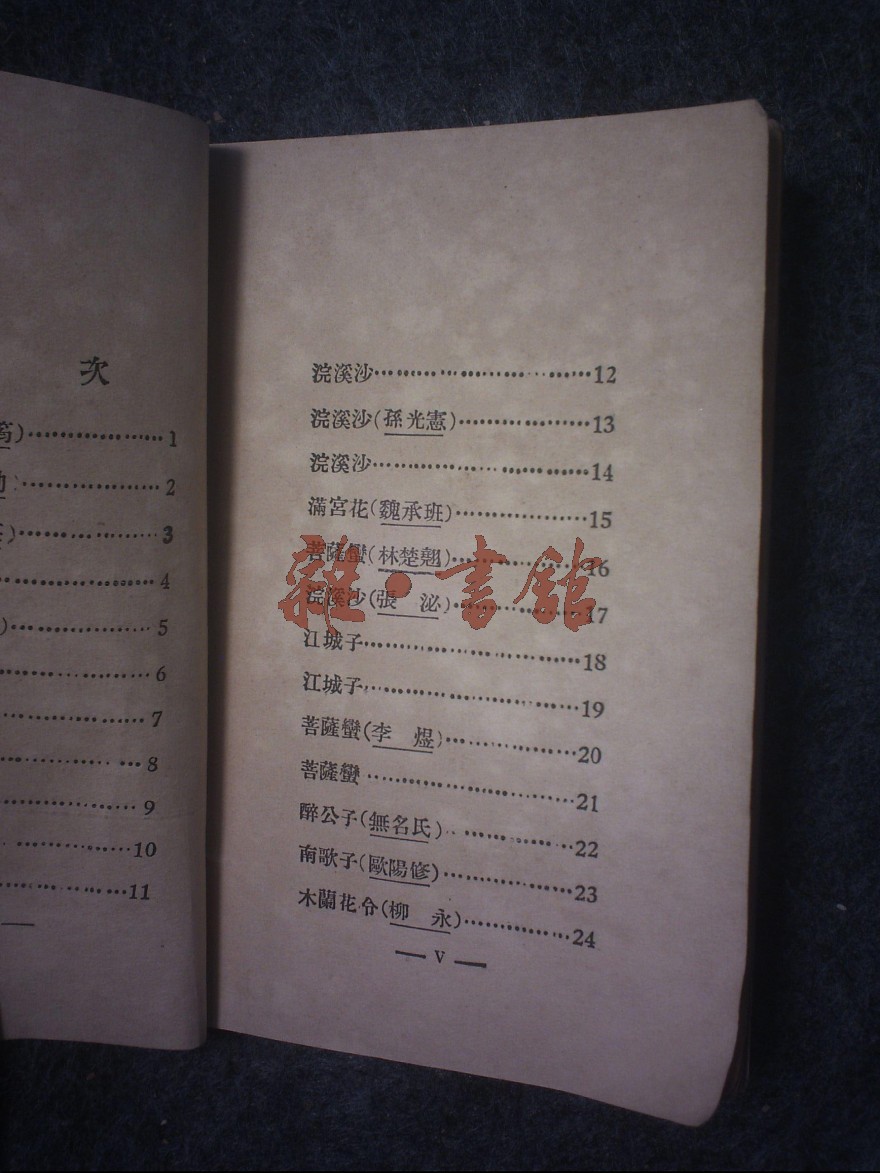 次
1
2
3
4
5
6
7
8
9
10
11
浣溪沙⋯⋯12
浣溪沙(孫光憲)⋯⋯13
浣溪沙⋯⋯14
滿宮花(魏承班)⋯⋯15
菩薩蠻(林楚翹)⋯⋯16
浣溪沙(張　泌)⋯⋯17
江城子⋯⋯18
江城子⋯⋯19
菩薩蠻(李　煜)⋯⋯20
菩薩蠻⋯⋯21
醉公子(無名氏)⋯⋯22
南歌子(歐陽修)⋯⋯23
木蘭花令(柳　永)⋯⋯24
— V —
雜·書館